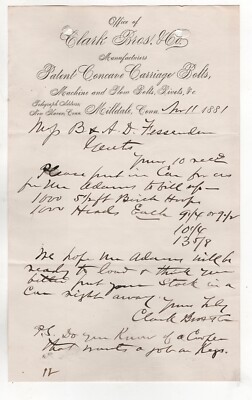 Office of
Clark Bros. & Co.
Manufacturers
Patent Concave Carriage Bolts,
Machine and Plow Bolts, Rivets, &c
Telegraph Address,
New Haven, Conn.
Milldale, Conn Nov 11 1881
Mess B & A D Fessenden
Gents
Yours 10 recd
Please put in Car for us
for Mr Adams to bill up
1000 5 1/2 ft Birch Hoops
1000 Heads Each 9 1/4 or 9 1/2
10 5/8
13 5/8
We hope Mr Adams will be
ready to load & think you
better put your Stock in a
Car right away Yours Truly
Clark Bros & Co
P.S. Do you Know of a Cooper
that wants a job on Kegs.